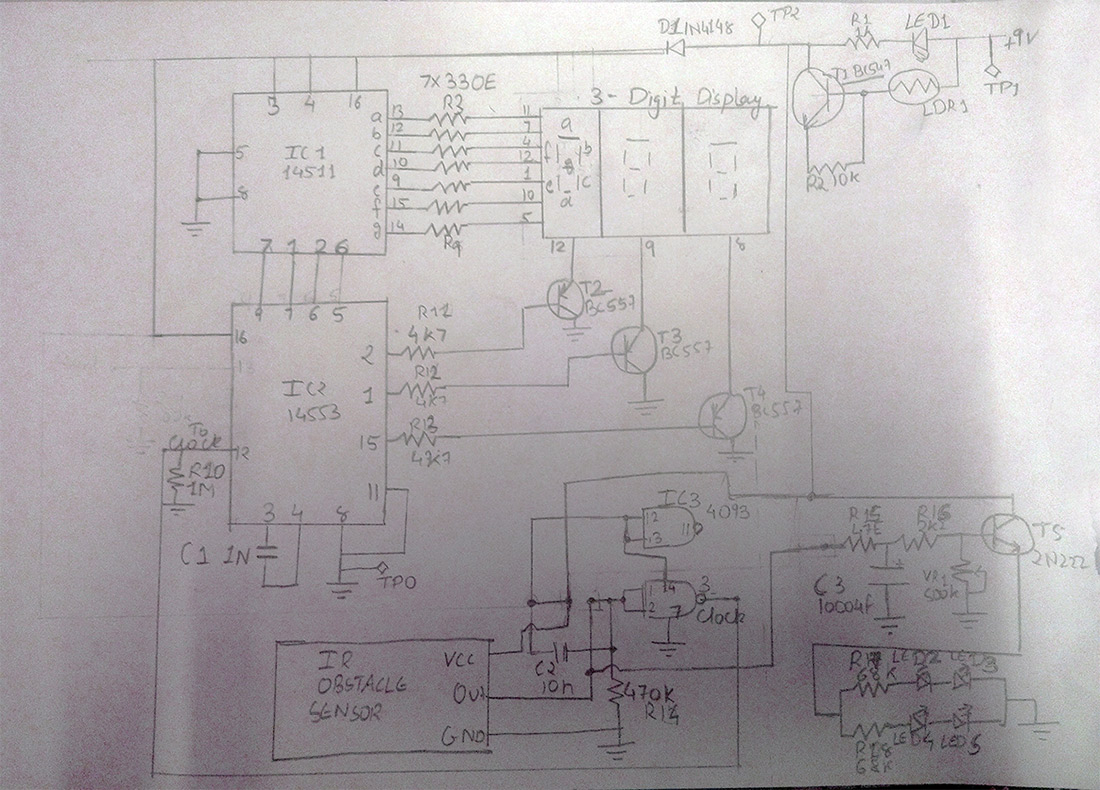 D1 1N4148
TP2
R1
1K
LED1
+9V
TP1
T1 BC547
LDR1
R2 10K
7X 330E
R3
3- Digit Display
3 4 16
a 13 11
b 12 7
c 11 4
d 10 12
e 9 1
f 15 10
g 14 5
R9
IC1
14511
5
8
7 1 2 6
a
f b
g
e c
d
12 9 8
T2
BC557
T3
BC557
T4
BC557
9 7 6 5
16
13
IC2
14553
2
1
15
11
12
R11
4K7
R12
4K7
R13
4K7
To
Clock
R10
1M
3 4 8
C1 1N
TP0
IC3
4093
12
13
11
1
2
14
7
3
Clock
R15
47E
R16
2K2
T5
2N222
C3
+
VR1
500K
IR
OBSTACLE
SENSOR
VCC
OUT
GND
C2
10n
470K
R14
R17 LED2 LED3
68K
R18 LED4 LED5
68K